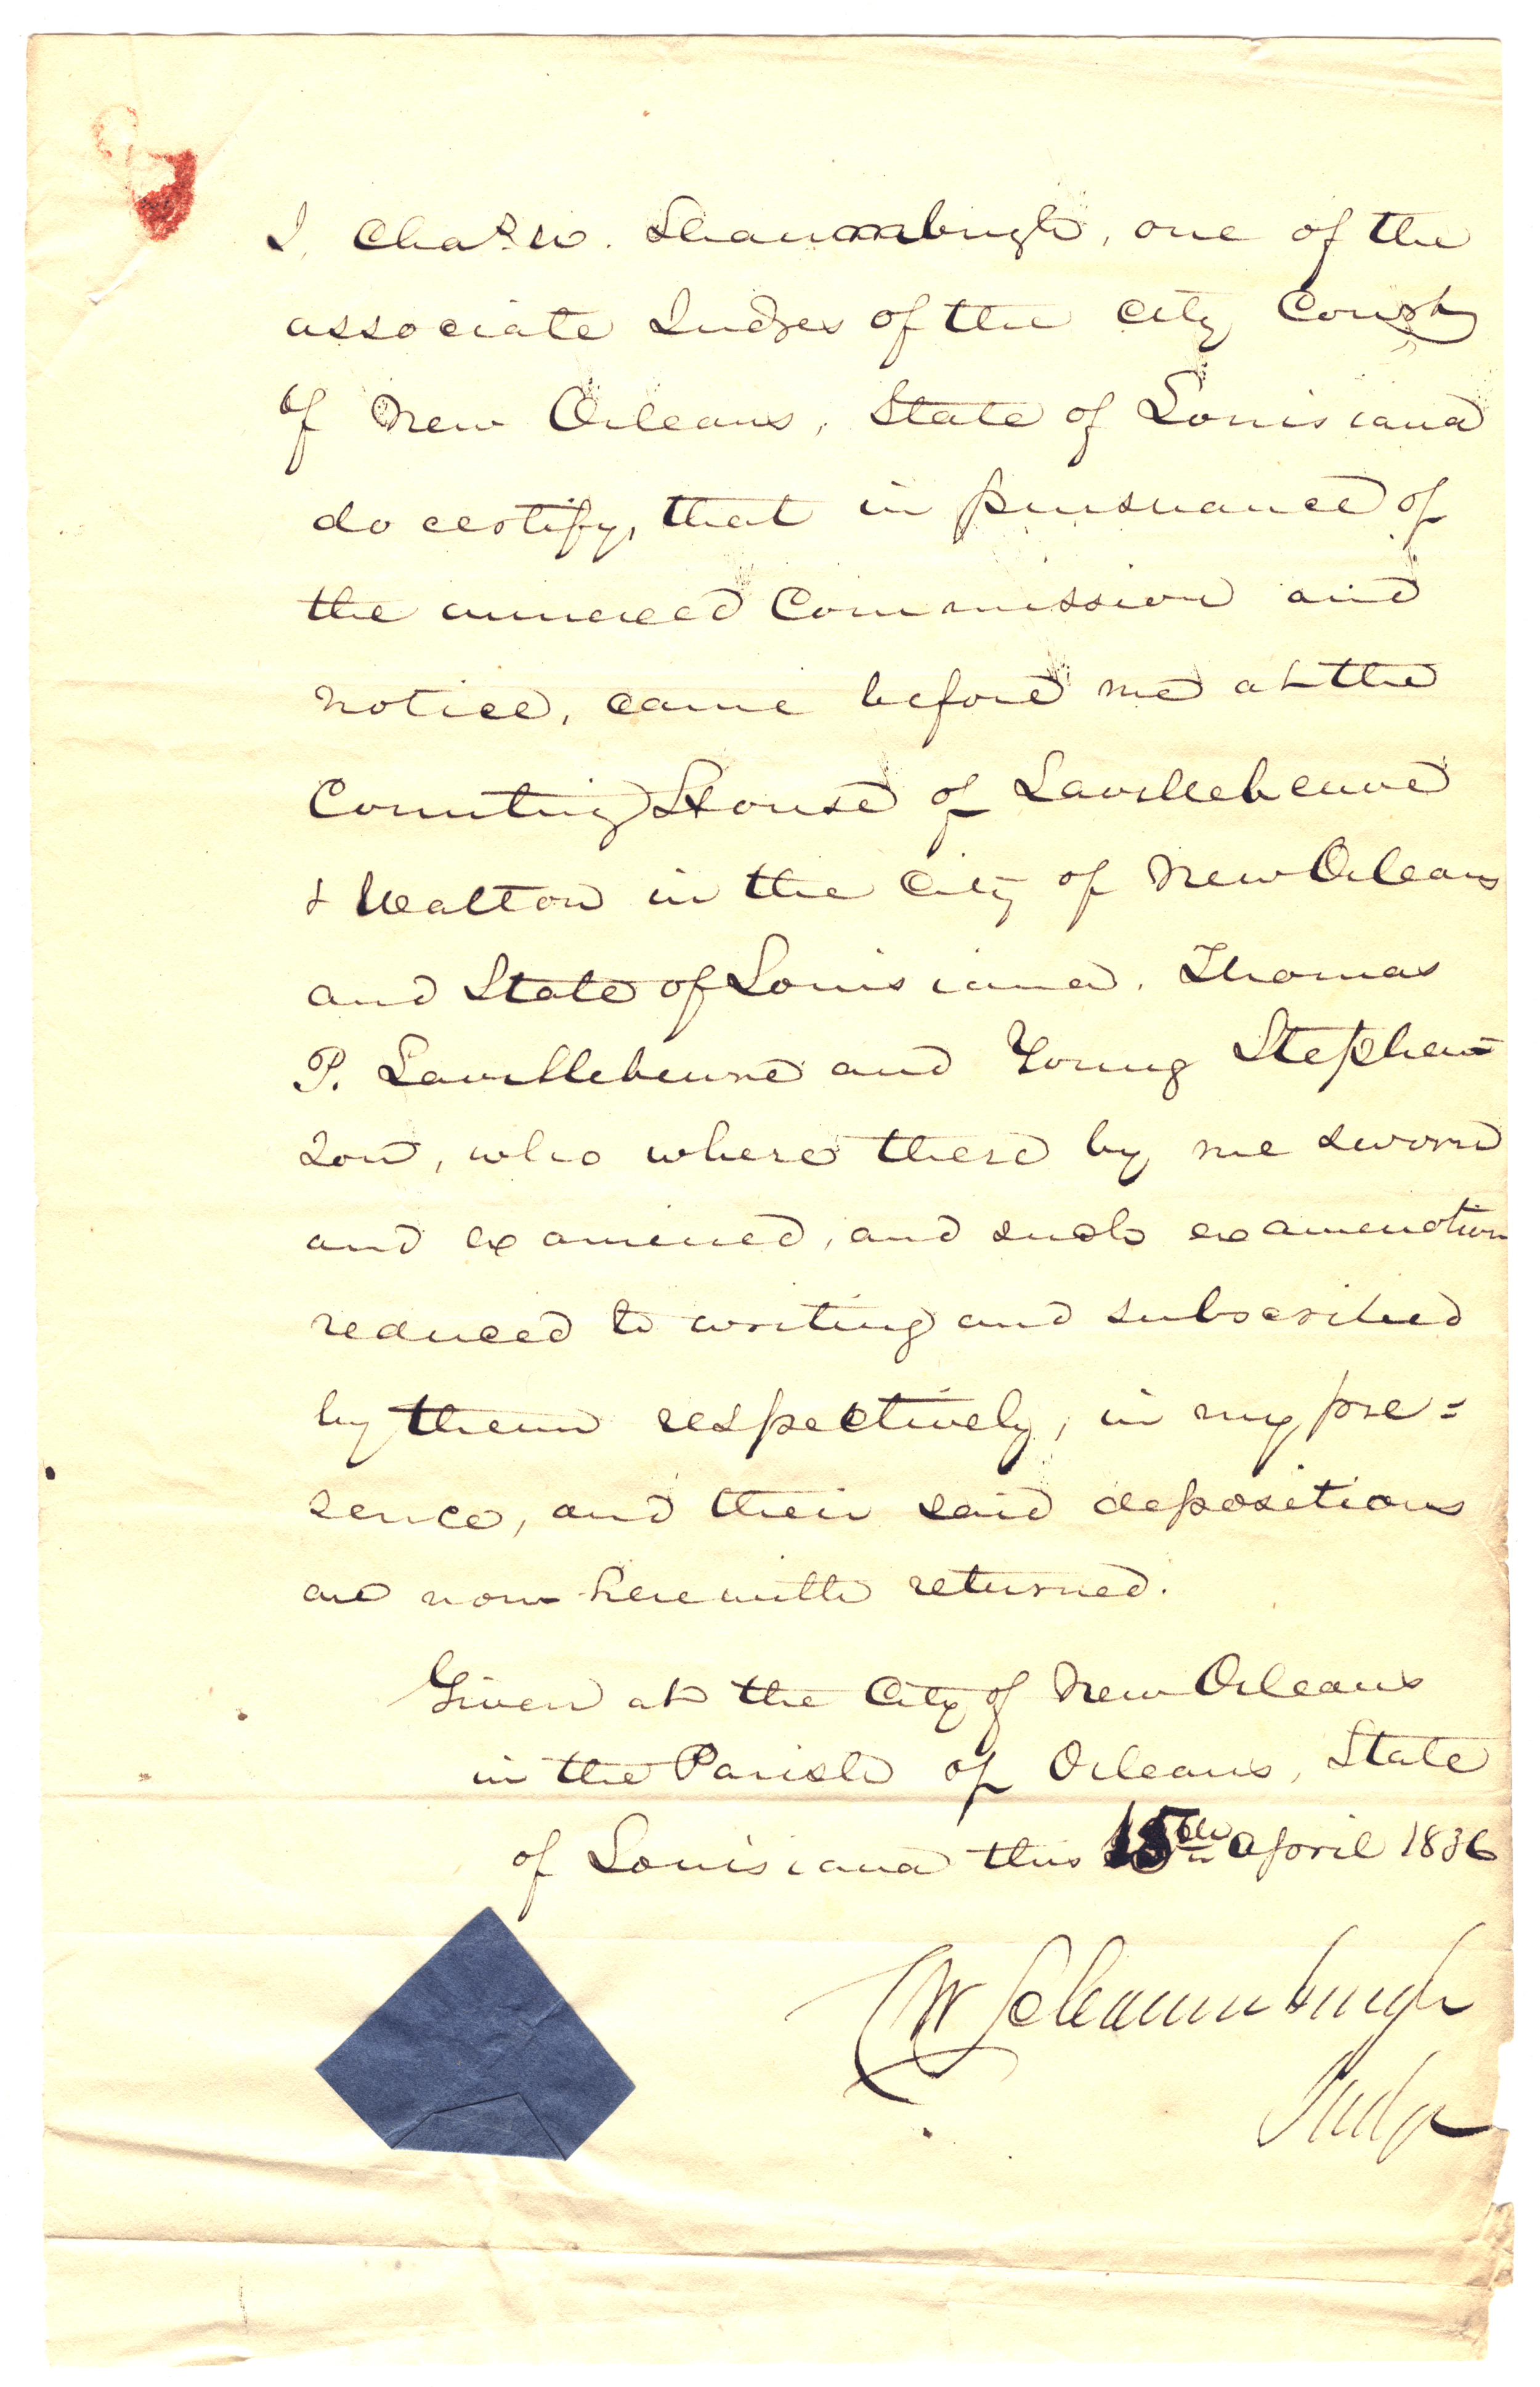 I, Chas. W. Shaumburgh, one of the
associate Judges of the City Court
of New Orleans, State of Louisiana
do certify, that in pursuance of
the annexed Commission and
notice, came before me at the
Counting House of Lavillebeuve
& Walton in the City of New Orleans
and State of Louisiana, Thomas
P. Lavillebeuve and Young Stephen=
son, who where there by me sworn
and examined, and such examenation
reduced to writing and subscribed
by them respectively, in my pre=
sence, and their said depositions
are now herewith returned.
Given at the City of New Orleans
in the Parish of Orleans, State
of Louisiana this 15th April 1836
CW Schaumburgh
Judge